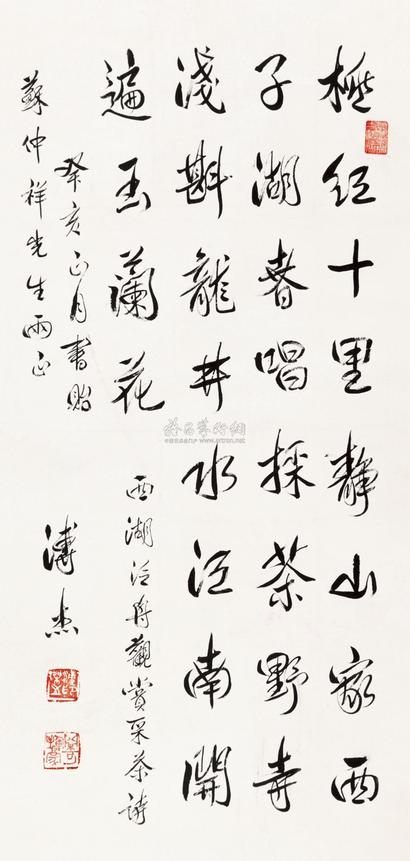 紅十里靜山家西
子湖春唱採茶野寺
淺斟龍井水江南開
遍玉蘭花
西湖觀賞采茶詩
癸亥正月書貽
蘇仲祥先生兩正
溥杰